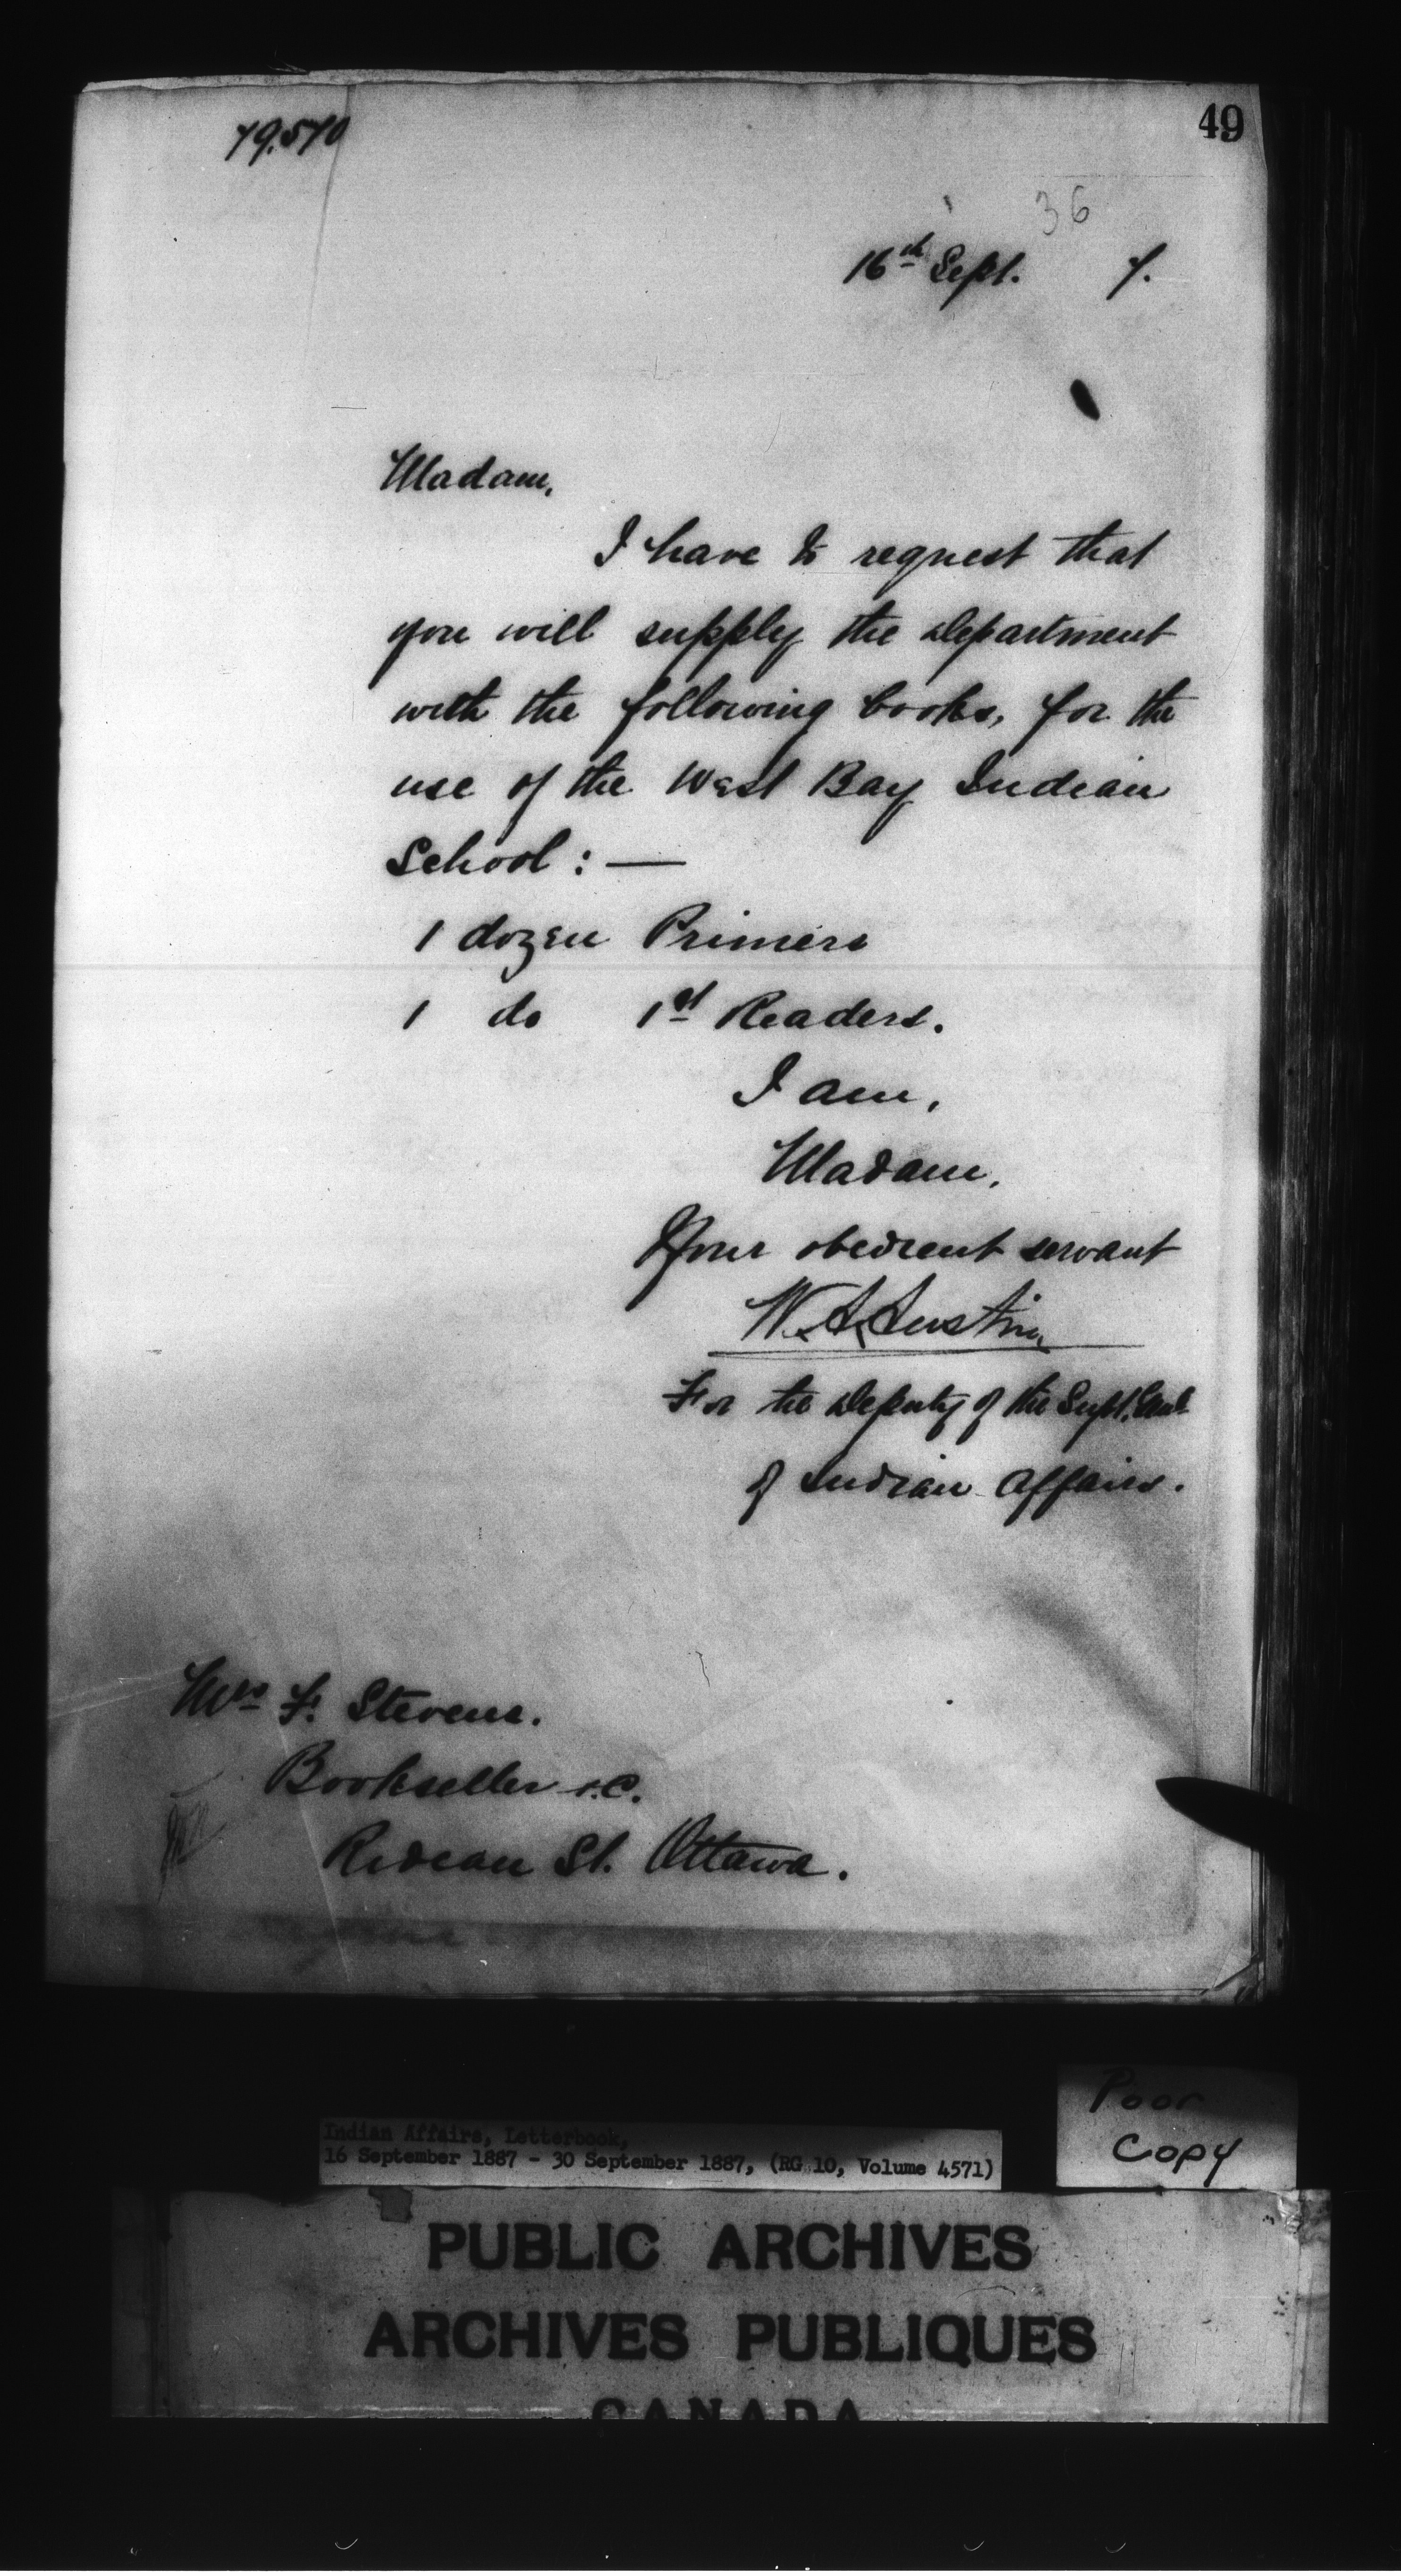 79.570
49
36
16th Sept. 7.
Madam,
I have to request that
you will supply the Department
with the following books, for the
use of the West Bay Indian
School : —
1 dozen Primers
1 do 1st Readers.
I am,
Madam,
Your obedient servant
W. A. Austin
For the Deputy of the Supt. Genl.
of Indian Affairs.
Mrs F. Stevens.
Bookseller &c.
Rideau St. Ottawa.
Poor
Copy
Indian Affairs, Letterbook,
16 September 1887 - 30 September 1887, (RG 10, Volume 4571)
PUBLIC ARCHIVES
ARCHIVES PUBLIQUES
CANADA